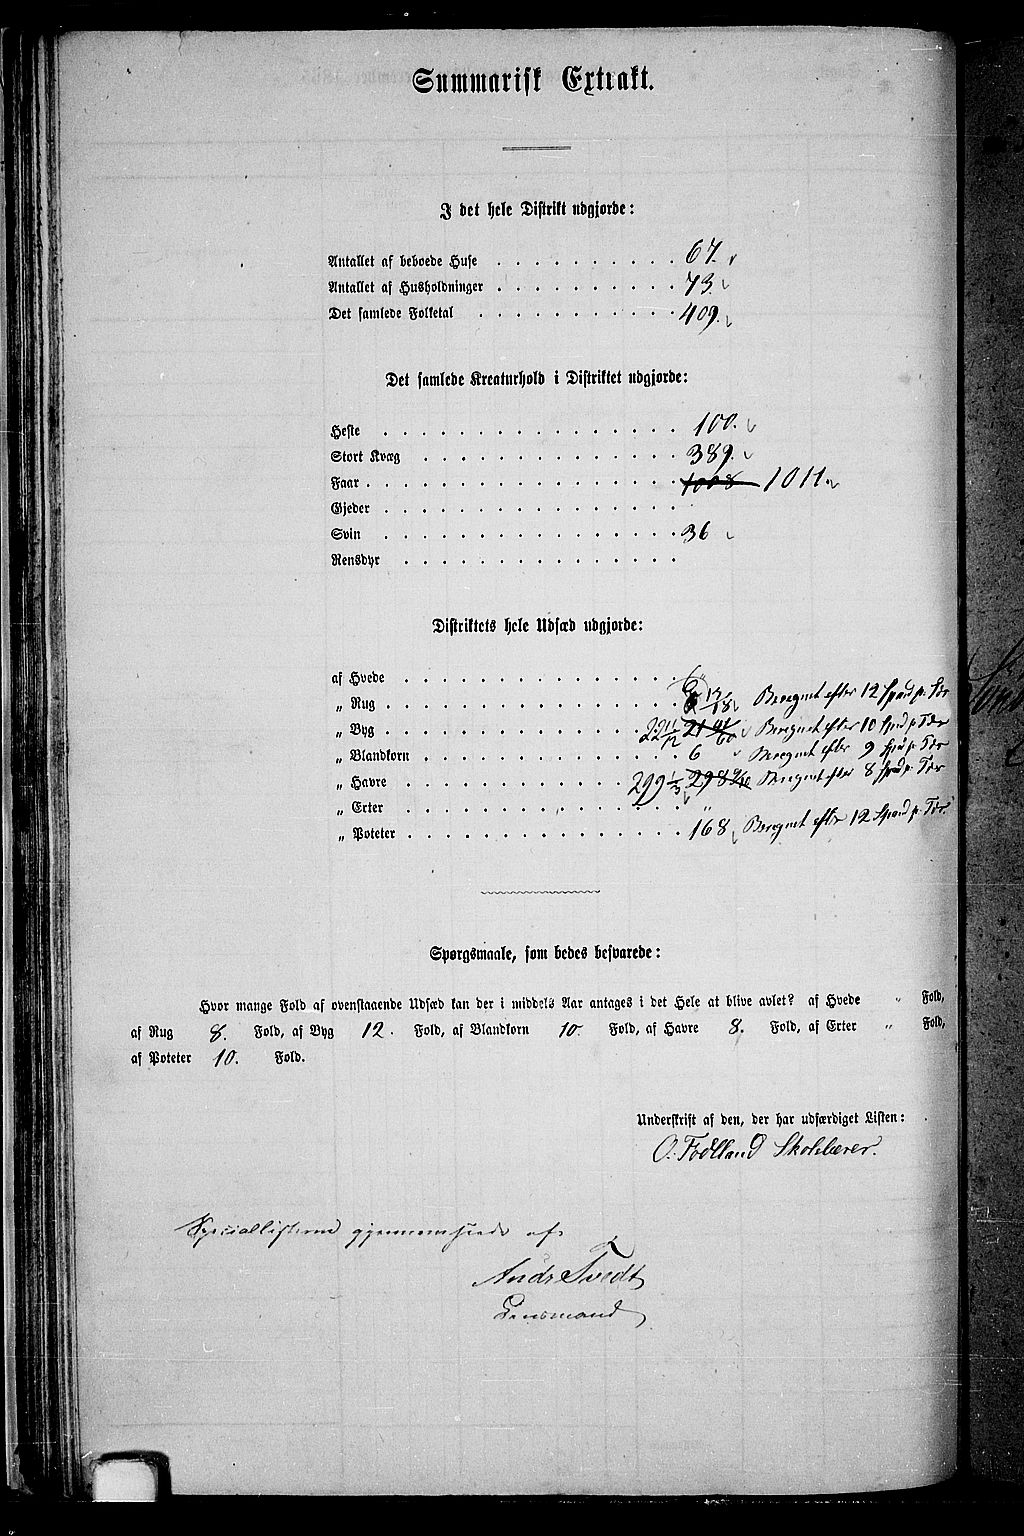 Summarisk Extrakt.
I det hele Distrikt udgjorde:
Antallet af beboede Huse . . . . . . . . . . 67.
Antallet af Husholdninger . . . . . . . . . . 73.
Det samlede Folketal . . . . . . . . . . . 409.
Det samlede Kreaturhold i Distriktet udgjorde:
Heste . . . . . . . . . . . . . . . . 100.
Stort Kvæg . . . . . . . . . . . . . . 389.
Faar . . . . . . . . . . . . . . . . . 1008 1011.
Gjeder . . . . . . . . . . . . . . . .
Svin . . . . . . . . . . . . . . . . 36
Rensdyr . . . . . . . . . . . . . . .
Distriktets hele Udsæd udgjorde:
af Hvede . . . . . . . . . . . . . . .
„ Rug . . . . . . . . . . . . . . . . Beregnet efter 12 Spand pr. Tør
„ Byg . . . . . . . . . . . . . . 22 11/12 21 Beregnet efter 10 Spd p. Tør
„ Blandkorn . . . . . . . . . . . . . 6 Beregnet efter 9 Spd p. Tør
„ Havre . . . . . . . . . . . . . 299 1/3 298 Beregnet efter 8 Spd p. Tør
„ Erter . . . . . . . . . . . . . . . "
„ Poteter . . . . . . . . . . . . . . 168 Beregnet efter 12 Spand p. Tør.
Spørgsmaale, som bedes besvarede:
Hvor mange Fold af ovenstaaende Udsæd kan der i middels Aar antages i det Hele at blive avlet? af Hvede " Fold,
af Rug 8. Fold, af Byg 12. Fold, af Blandkorn 10. Fold, af Havre 8. Fold, af Erter " Fold,
af Poteter 10. Fold.
Underskrift af den, der har udfærdiget Listen:
O. Fodlland Skolelærer.
Speciallisterne gjennemseede af
Andr Tvedt
Lensmand